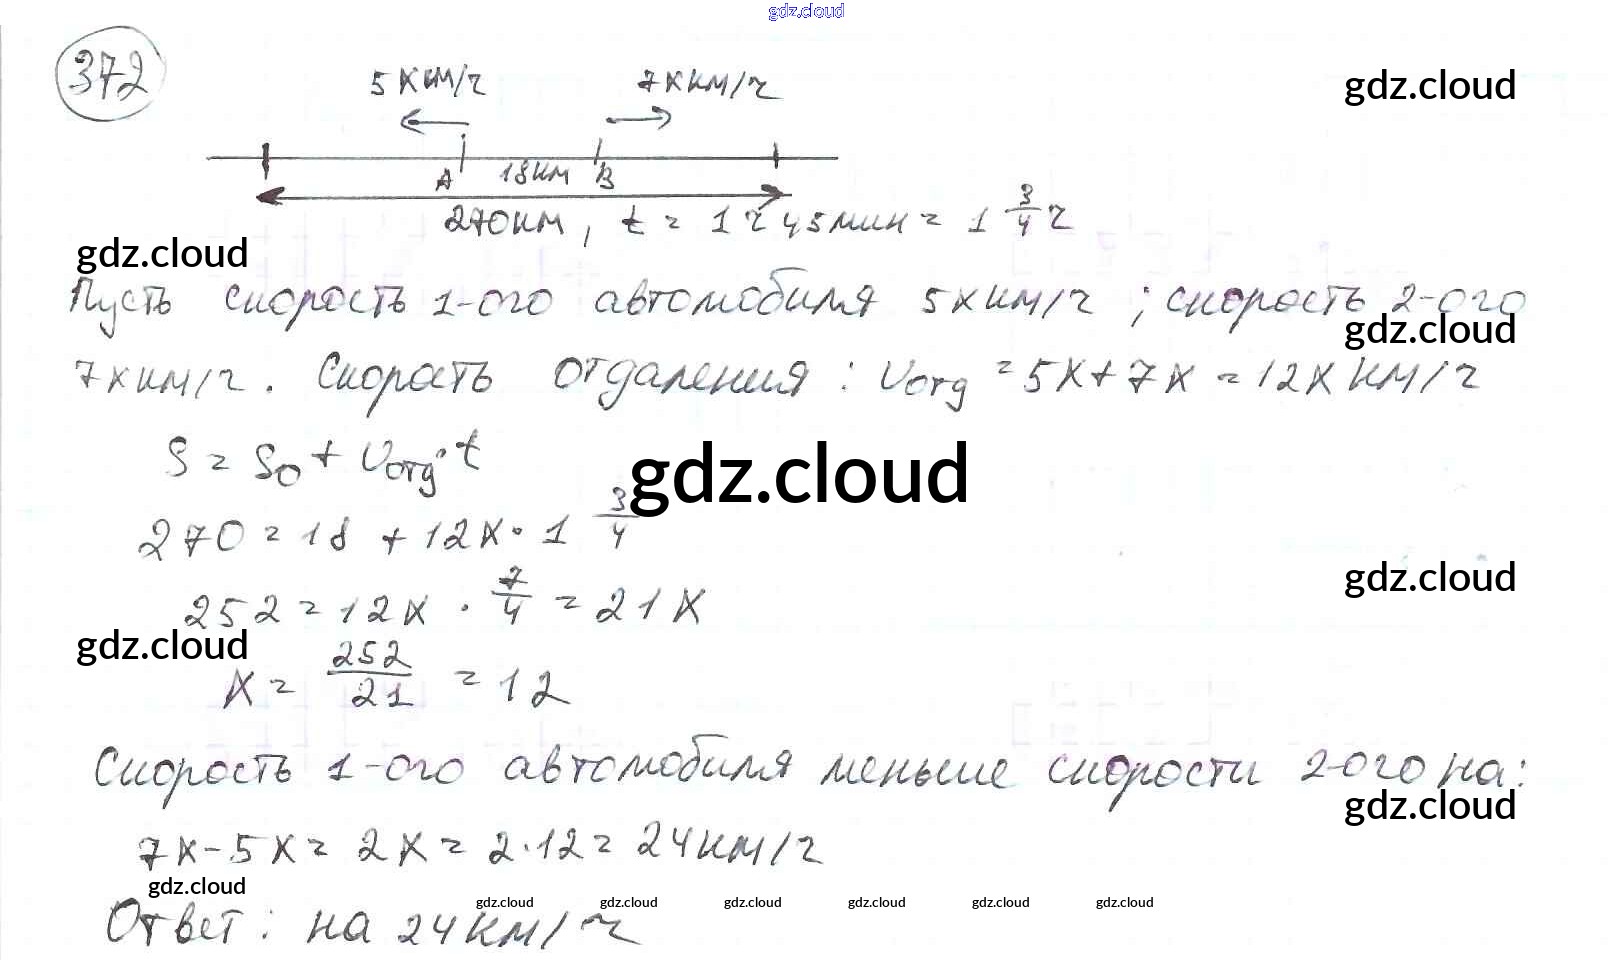 gdz.cloud
372
5x км/ч 7x км/ч
gdz.cloud
A 18км B
270км, t = 1ч 45мин = 1 3/4 ч
gdz.cloud
Пусть скорость 1-ого автомобиля 5x км/ч ; скорость 2-ого
gdz.cloud
7x км/ч. Скорость отдаления : vотд = 5x + 7x = 12x км/ч
S = S0 + vотд · t
gdz.cloud
270 = 18 + 12x · 1 3/4
gdz.cloud
252 = 12x · 7/4 = 21x
gdz.cloud
x = 252/21 = 12
Скорость 1-ого автомобиля меньше скорости 2-ого на:
gdz.cloud
7x - 5x = 2x = 2·12 = 24 км/ч
gdz.cloud
gdz.cloud gdz.cloud gdz.cloud gdz.cloud gdz.cloud gdz.cloud
Ответ : на 24 км/ч